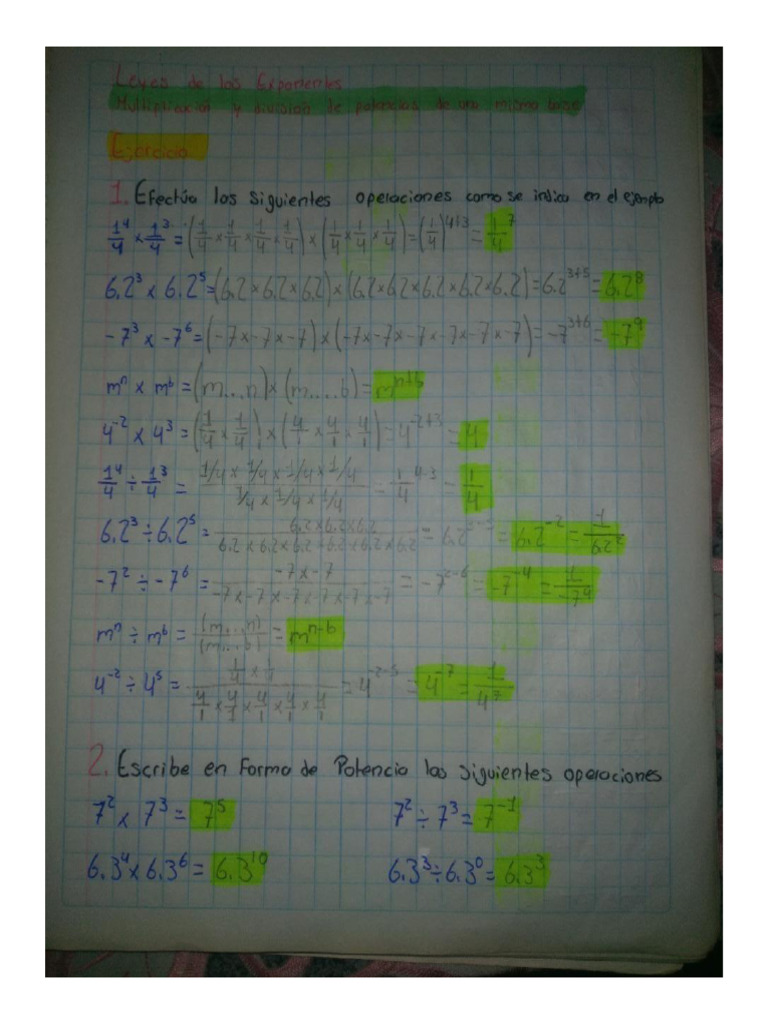 Leyes de los Exponentes
Multiplicación y división de potencias de una misma base
Ejercicio
1. Efectúa las siguientes operaciones como se indica en el ejemplo
1/4⁴ × 1/4³ = (1/4 × 1/4 × 1/4 × 1/4) × (1/4 × 1/4 × 1/4) = (1/4)⁴⁺³ = 1/4⁷
6.2³ × 6.2⁵ = (6.2 × 6.2 × 6.2) × (6.2 × 6.2 × 6.2 × 6.2 × 6.2) = 6.2³⁺⁵ = 6.2⁸
-7³ × -7⁶ = (-7 × -7 × -7) × (-7 × -7 × -7 × -7 × -7 × -7) = -7³⁺⁶ = -7⁹
mⁿ × mᵇ = (m...n) × (m....b) = mⁿ⁺ᵇ
4⁻² × 4³ = (1/4 × 1/4) × (4/1 × 4/1 × 4/1) = 4⁻²⁺³ = 4
1/4⁴ ÷ 1/4³ = (1/4 × 1/4 × 1/4 × 1/4)/(1/4 × 1/4 × 1/4) = 1/4⁴⁻³ = 1/4
6.2³ ÷ 6.2⁵ = (6.2 × 6.2 × 6.2)/(6.2 × 6.2 × 6.2 × 6.2 × 6.2 × 6.2) = 6.2³⁻⁵ = 6.2⁻² = 1/6.2²
-7² ÷ -7⁶ = (-7 × -7)/(-7 × -7 × -7 × -7 × -7 × -7) = -7²⁻⁶ = -7⁻⁴ = 1/-7⁴
mⁿ ÷ mᵇ = (m...n)/(m...b) = mⁿ⁻ᵇ
4⁻² ÷ 4⁵ = (1/4 × 1/4)/(4/1 × 4/1 × 4/1 × 4/1 × 4/1) = 4⁻²⁻⁵ = 4⁻⁷ = 1/4⁷
2. Escribe en Forma de Potencia las siguientes operaciones
7² × 7³ = 7⁵ 7² ÷ 7³ = 7⁻¹
6.3⁴ × 6.3⁶ = 6.3¹⁰ 6.3³ ÷ 6.3⁰ = 6.3³